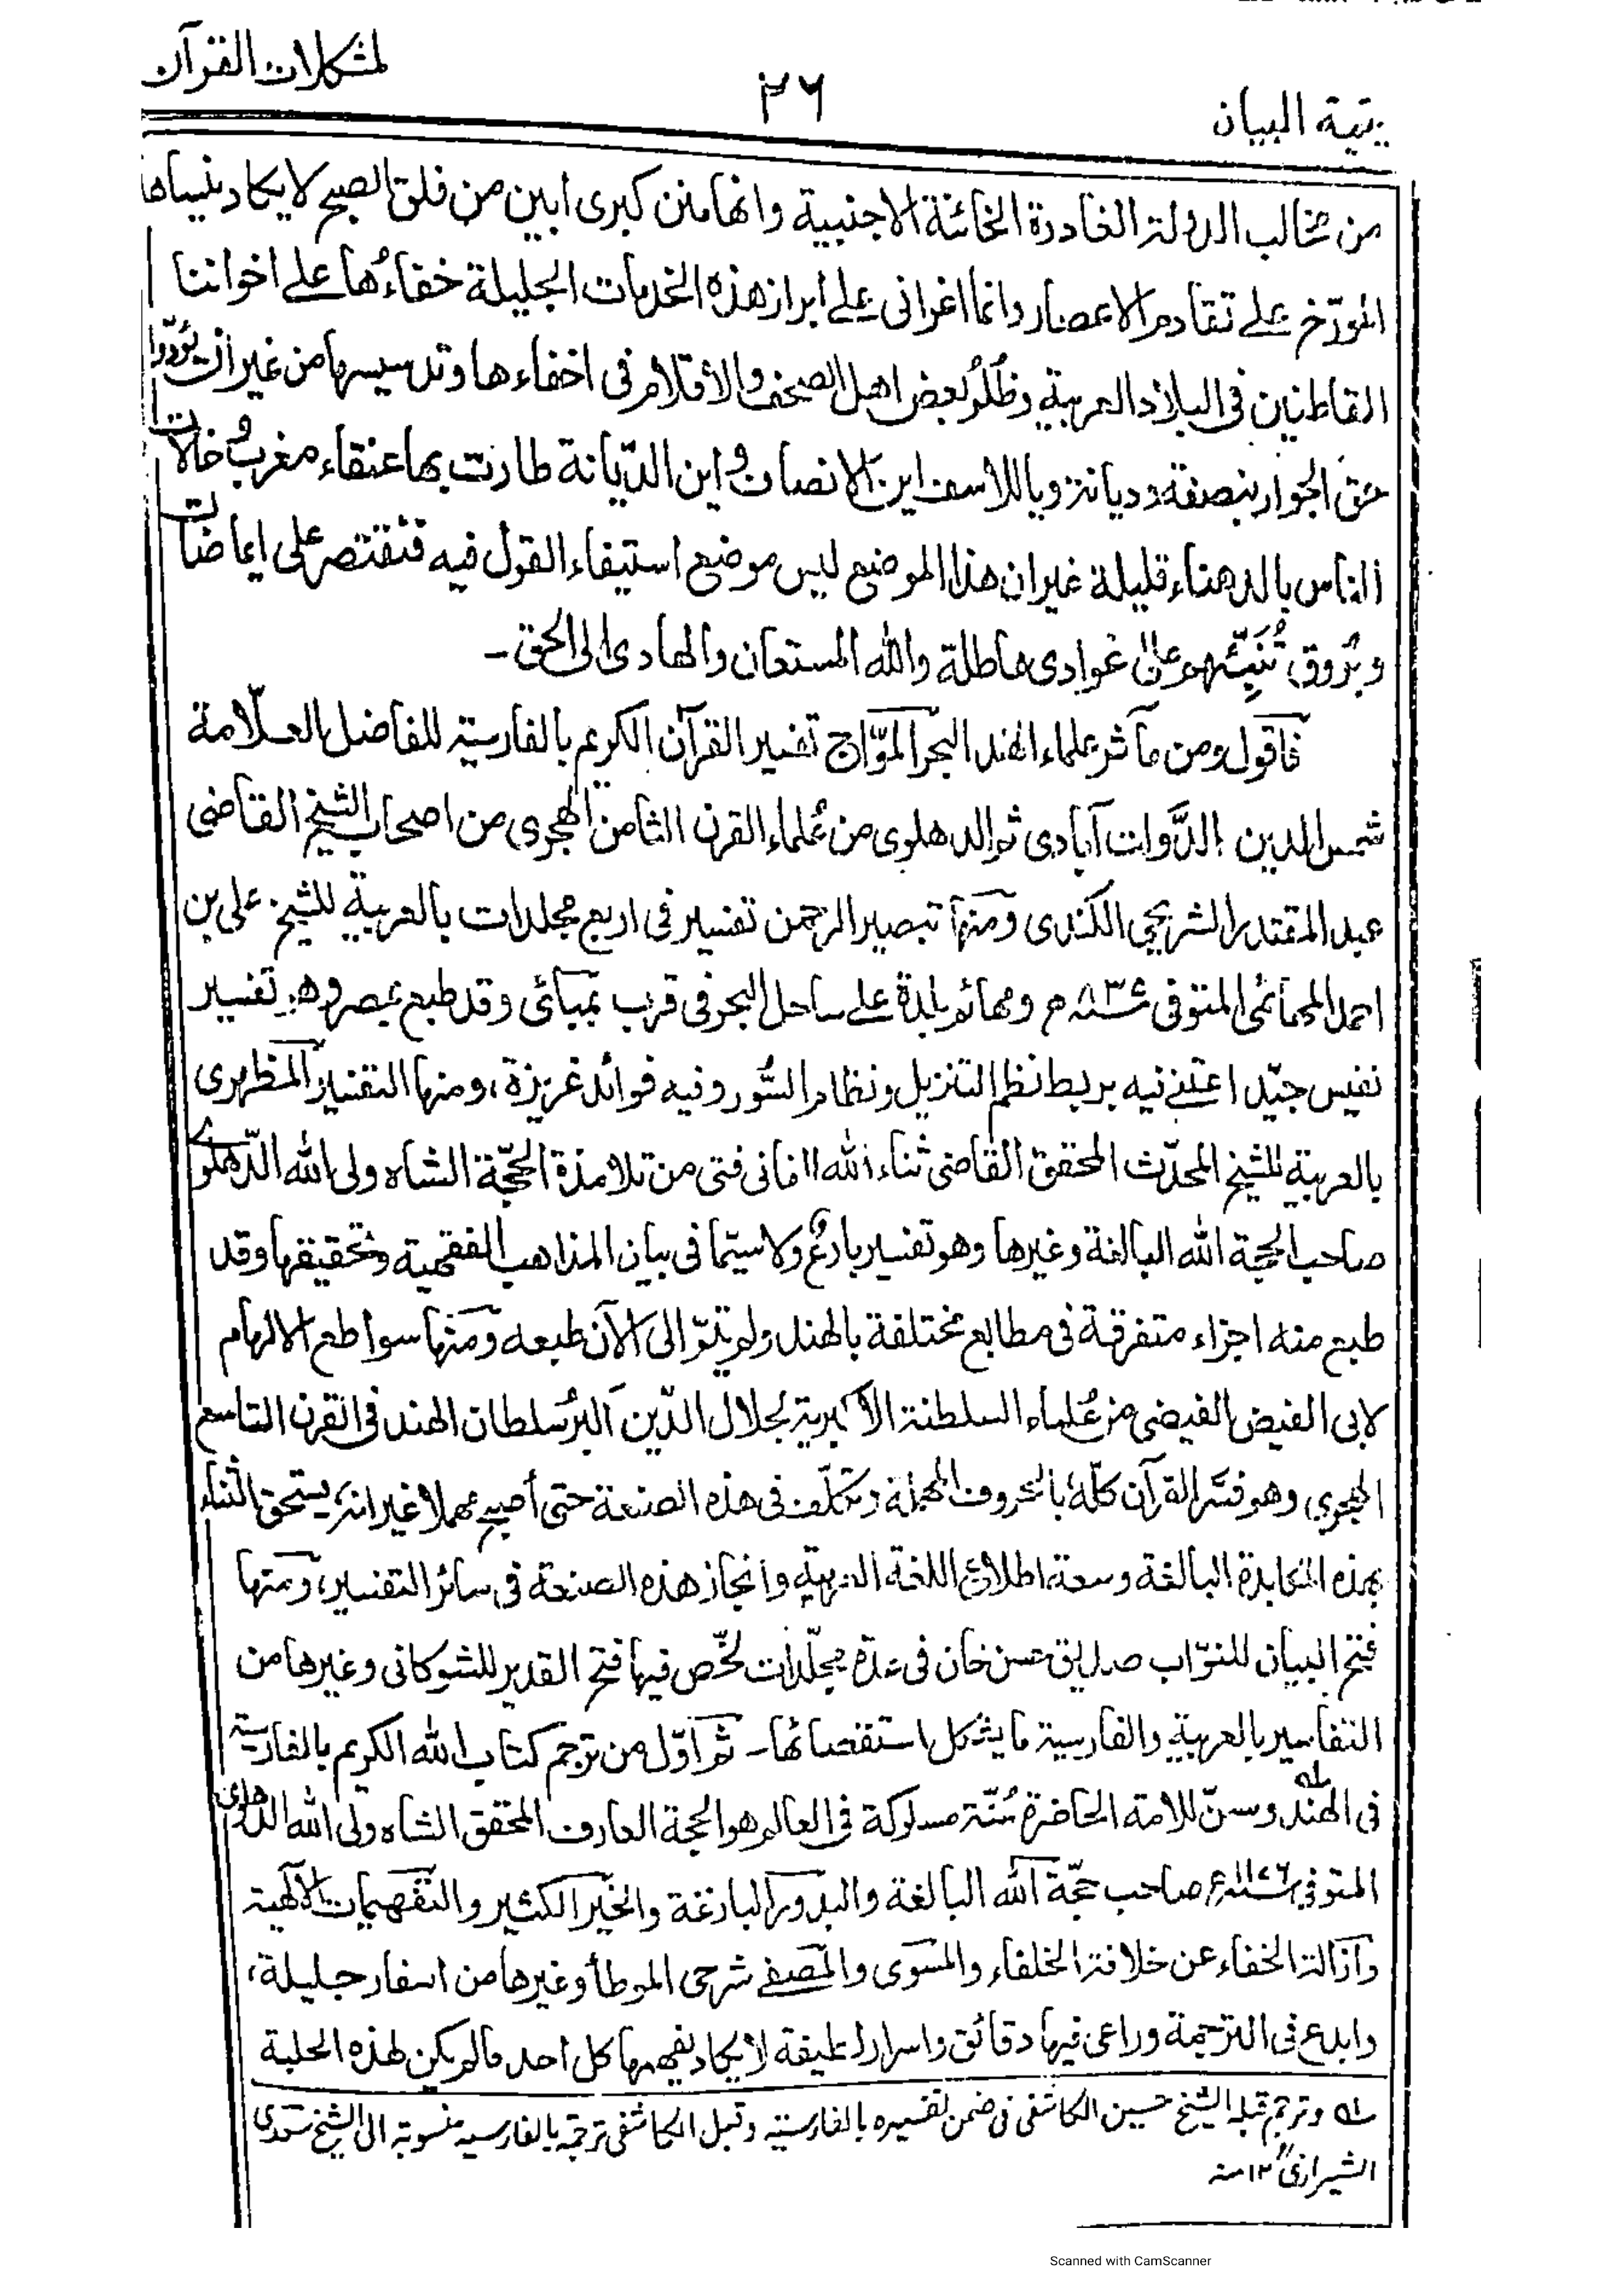 يتيمة البيان
٢٦
لمشكلات القرآن
من مخالب الدولة الغادرة الخائنة الاجنبية وانها منن كبرى ابين من فلق الصبح لا يكاد ينساها
المورّخ على تقادم الاعصار وانما اغرانى على ابراز هذه الخدمات الجليلة خفاءُها على اخواننا
القاطنين فى البلاد العربية وظُلمُ بعض اهل الصحف والأقلام فى اخفاءها وتدسيسها من غير ان يُؤدّوا
حق الجوار بنصفة وديانة وياللاسف اين الانصاف واين الدّيانة طارت بها عنقاء مغرب وخالات
الناس بالدهناء قليلة غير ان هذا الموضع ليس موضع استيفاء القول فيه فنقتصر على ايماضات
وبُروق تُنَبِّئهم على غوادى هاطلة والله المستعان والهادى الى الحق ــ
فاقول ومن مآثر علماء الهند البحر الموّاج تفسير القرآن الكريم بالفارسية للفاضل العلّامة
شمس الدين الدَّولت آبادى ثم الدهلوى من عُلماء القرن الثامن الهجرى من اصحاب الشيخ القاضى
عبد المقتدر الشريحى الكندى ومنها تبصير الرحمن تفسير فى اربع مجلدات بالعربية للشيخ على بن
احمد المهائمى المتوفى ٨٣٥ـه م ومهائم بلدة على ساحل البحر فى قرب بمبائى وقد طبع بمصر وهو تفسير
نفيس جيّد اعتنى فيه بربط نظم التنزيل ونظام السُّور وفيه فوائد غزيزة، ومنها التفسير المظهرى
بالعربية للشيخ المحدّث المحقق القاضى ثناء الله الفانى فتى من تلامذة الحجّة الشاه ولى الله الدّهلوى
صاحب الحجة الله البالغة وغيرها وهو تفسير بارعٌ ولا سيّما فى بيان المذاهب الفقهية وتحقيقها وقد
طبع منه اجزاء متفرقة فى مطابع مختلفة بالهند ولم يتمّ الى الآن طبعه ومنها سواطع الالهام
لابى الفيض الفيضى من عُلماء السلطنة الاكبرية لجلال الدّين اكبرُ سلطان الهند فى القرن التاسع
الهجرى وهو فسّر القرآن كلّهٗ بالحروف المهملة وتكلّف فى هذه الصنعة حتى أصبح مهملا غير انهٗ يستحق الثناء
بهذه المكابدة البالغة وسعة اطلاع اللغة العربية وانجاز هذه الصنعة فى سائر التفسير، ومنها
فتح البيان للنوّاب صديق حسن خان فى عدة مجلّدات لخّص فيها فتح القدير للشوكانى وغيرها من
التفاسير بالعربية والفارسية ما يشكل استقصائها ــ ثم اوّل من ترجم كتاب الله الكريم بالفارسية
فى الهند لـه وسنّ للامة الحاضرة سُنّة مسلوكة فى العالم هو الحجة العارف المحقق الشاه ولى الله الدهلوى
المتوفى ١١٧٦ـه صاحب حجّة الله البالغة والبدور البازغة والخير الكثير والتفهيمات الالٰهية
وازالة الخفاء عن خلافة الخلفاء والمسوى والمصفى شرحى الموطأ وغيرها من اسفار جليلة،
وابدع فى الترجمة وراعى فيها دقائق واسرارا لطيفة لا يكاد يفهمها كل احد مالم يكن لهذه الحلبة
لـه وترجم قبله الشيخ حسين الكاشفى فى ضمن تفسيره بالفارسية وقبل الكاشفى ترجمة بالفارسية منسوبة الى الشيخ سعدى
الشيرازىؒ ١٢ منه
Scanned with CamScanner